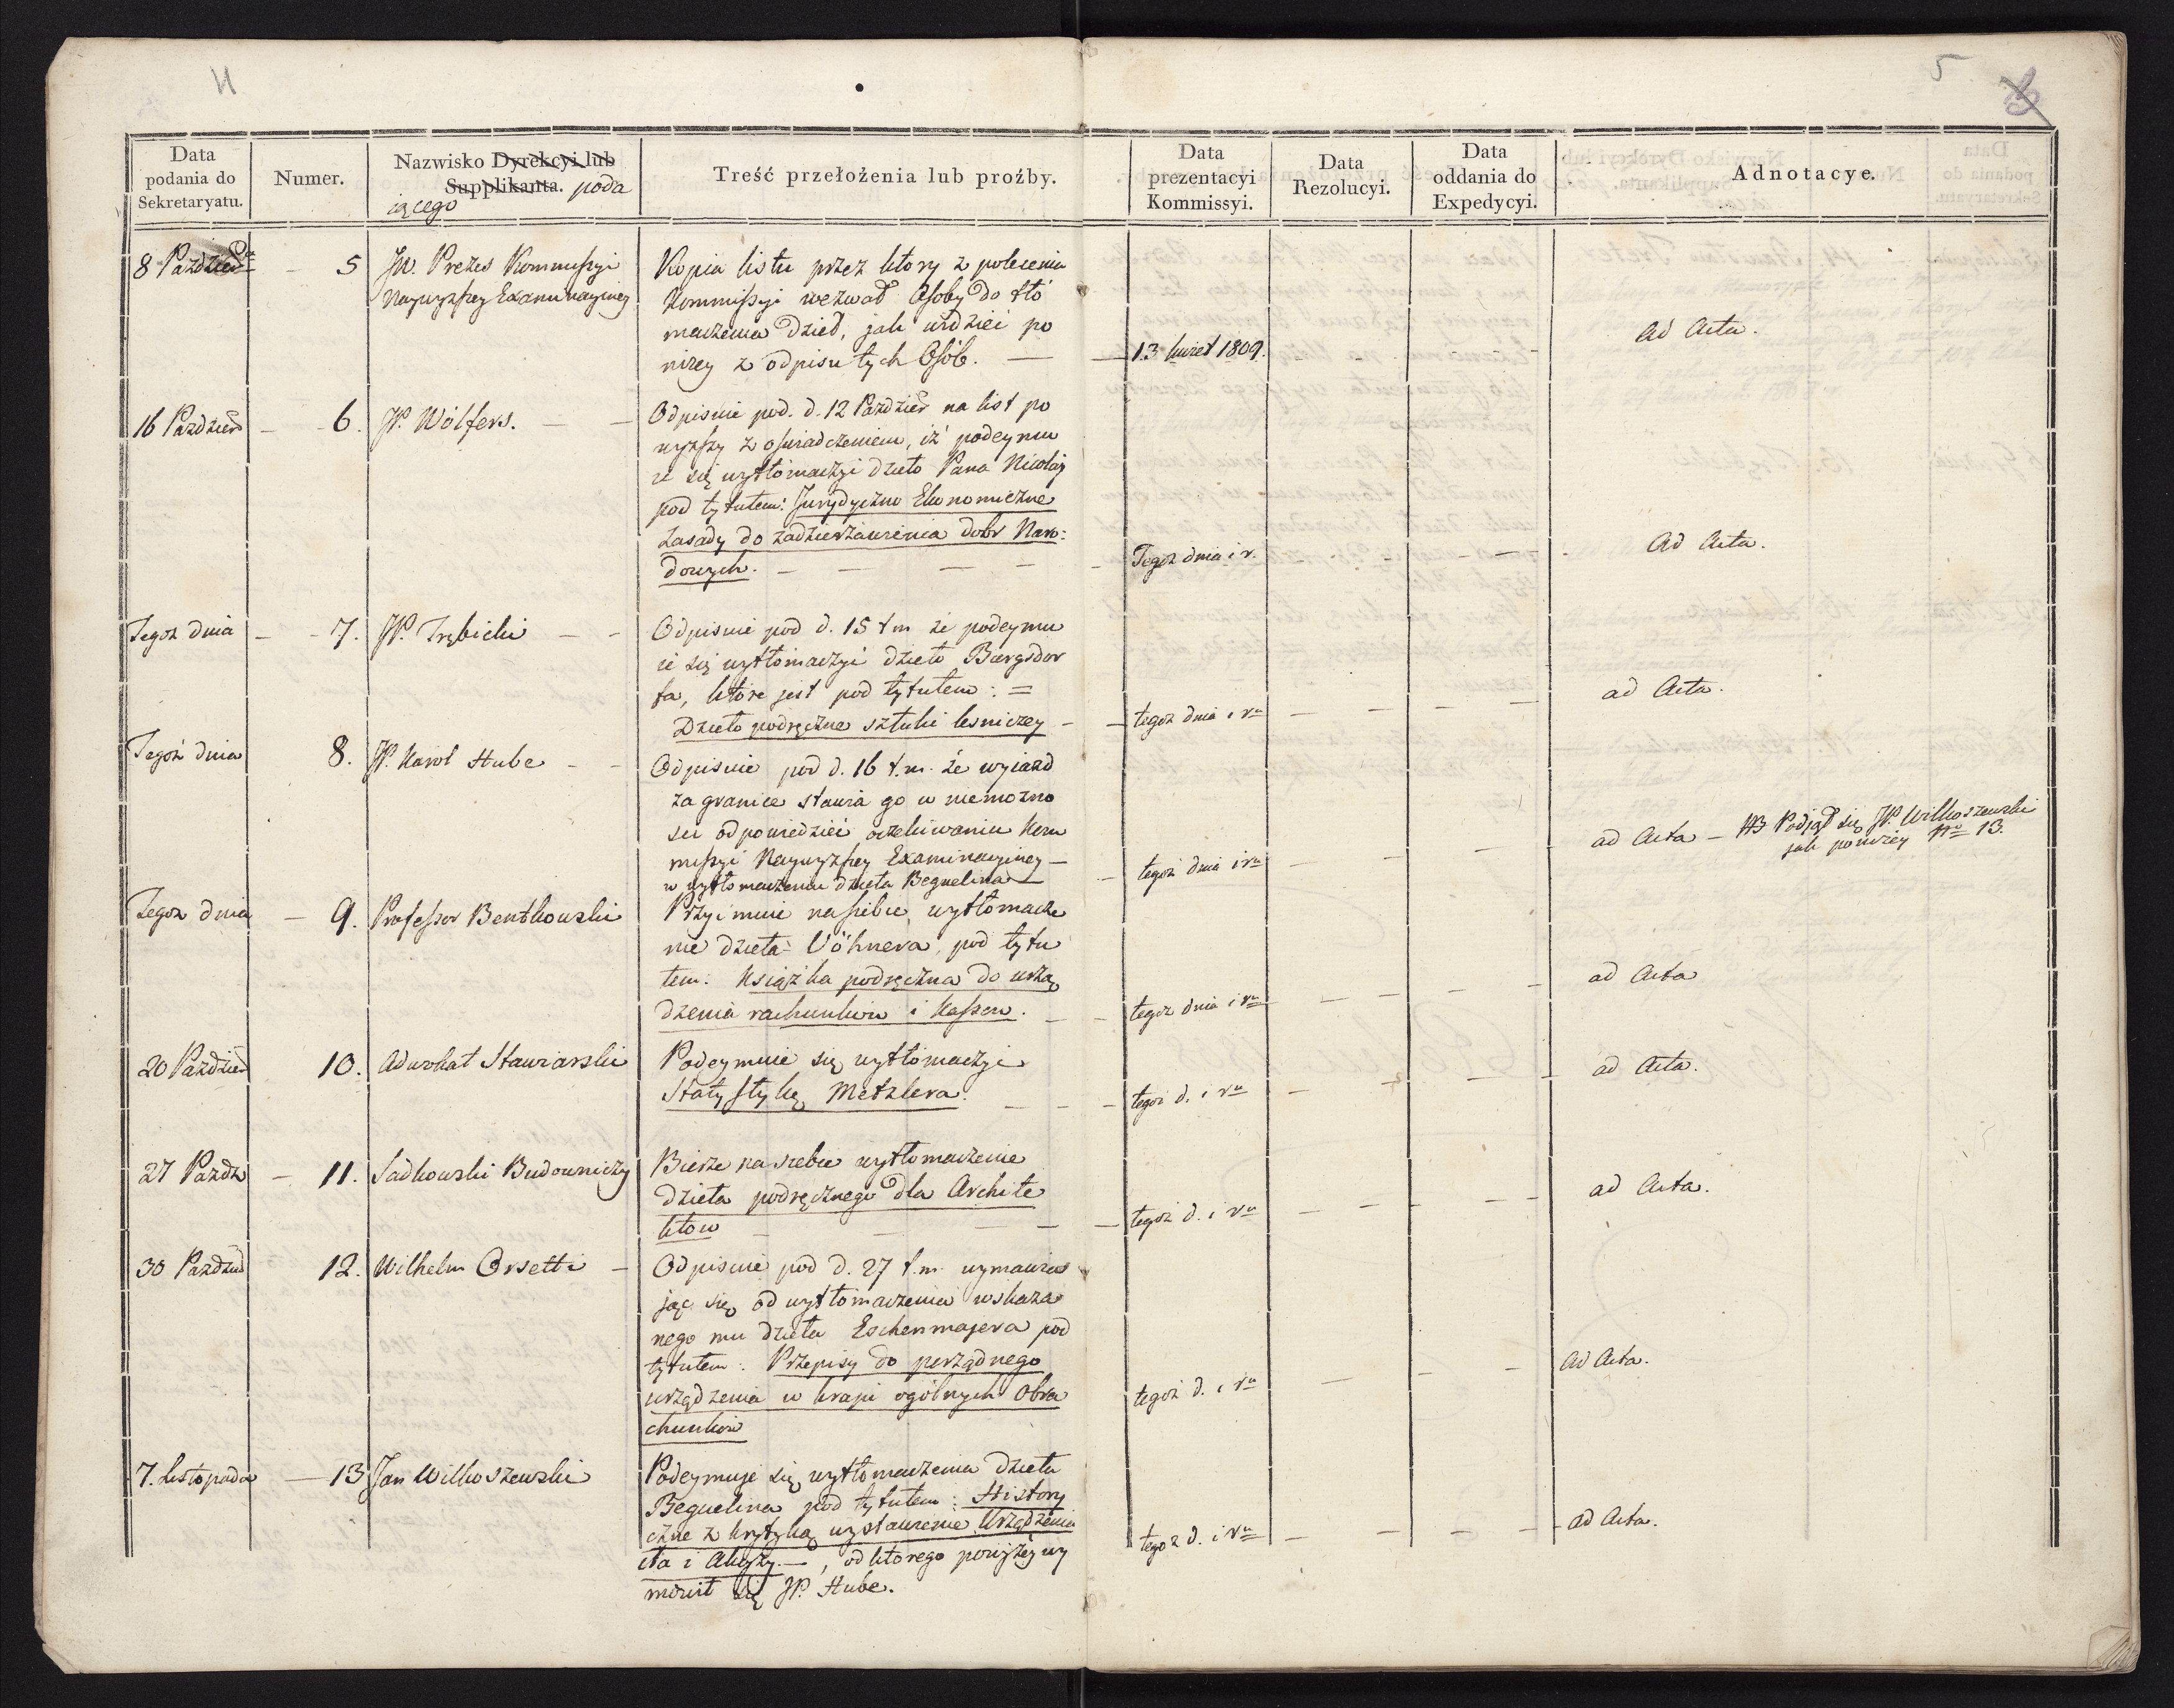 5
Data podania do Sekretaryatu.
Numer.
Nazwisko Dyrekcyi lub Supplikanta. poda
iącego
Treść przełożenia lub proźby.
Data prezentacyi Kommissyi.
Data Rezolucyi.
Data oddania do Expedycyi.
Adnotacye.
8 Paździer
5
JW. Prezes Kommissyi
Naywyższey Examinacyiney
Kopia listu przez ktory z polecenia
Kommissyi wezwał Osoby do tłó
maczenia dzieł, jak widzieć po
niżey z odpisu tych Osób. —
13 kwiet 1809.
ad Acta.
16 Paździer
6.
JP. Wölfers.
Odpisuie pod. d. 12 Paździer na list po
wyższy z oświadczeniem, iż podeymu
ie się wytłómaczyć dzieło Pana Nicolaj
pod tytułem: Jurydyczno Ekonomiczne
zasady do zadzierżawienia dobr Naro:
dowych. —
Tegoż dnia i r.
ad Acta.
Tegoż dnia
7.
JP. Trębicki
Odpisuie pod d. 15 t m że podeymu
ie się wytłómaczyć dzieło Burgsdor
fa, które jest pod tytułem: =
Dzieło podręczne sztuki lesniczey
tegoż dnia i ru
ad Acta.
Tegoż dnia
8.
JP. Karol Hube
Odpisuie pod d. 16 t. m. że wyiazd
za granice stawia go w niemożno
ści odpowiedzieć oczekiwaniu Kom
missyi Naywyższey Examinacyiney —
w wytłomaczeniu dzieła Beguelina
tegoż dnia i ru
ad Acta — NB Podjął się JP. Wilkoszewski
jak poniżey Nro 13.
Tegoż dnia
9.
Professor Bentkowski
Przyimuie na siebie wytłomacze
nie dzieła Vöhnera, pod tytu
łem: Książka podręczna do urzą
dzenia rachunków i Kassow.
tegoż dnia i ru
ad Acta
20 Paździer
10.
Adwokat Stawiarski
Podeymuie się wytłómaczyć
Statystykę Metzlera.
tegoż d. i ru
ad Acta.
27 Paźdz
11.
Sadkowski Budowniczy
Bierze na siebie wytłomaczenie
dzieła podręcznego dla Archite
któw
tegoż d. i ru
ad Acta.
30 Paździer
12.
Wilhelm Orsetti
Odpisuie pod d. 27 t. m. wymawia
jąc się od wytłomaczenia wskaza
nego mu dzieła Eschenmajera pod
tytułem: Przepisy do porządnego
urządzenia w kraju ogólnych Obra
chunków
tegoż d. i ru
ad Acta.
7. Listopada
13
Jan Wilkoszewski
Podeymuje się wytłomaczenia dzieła
Beguelina pod tytułem: History
czne z krytyką wystawienie Urządzenia
cła i Akcyzy. —, od ktorego powyżey wy
mówił się JP. Hube.
tegoż d. i ru
ad Acta.